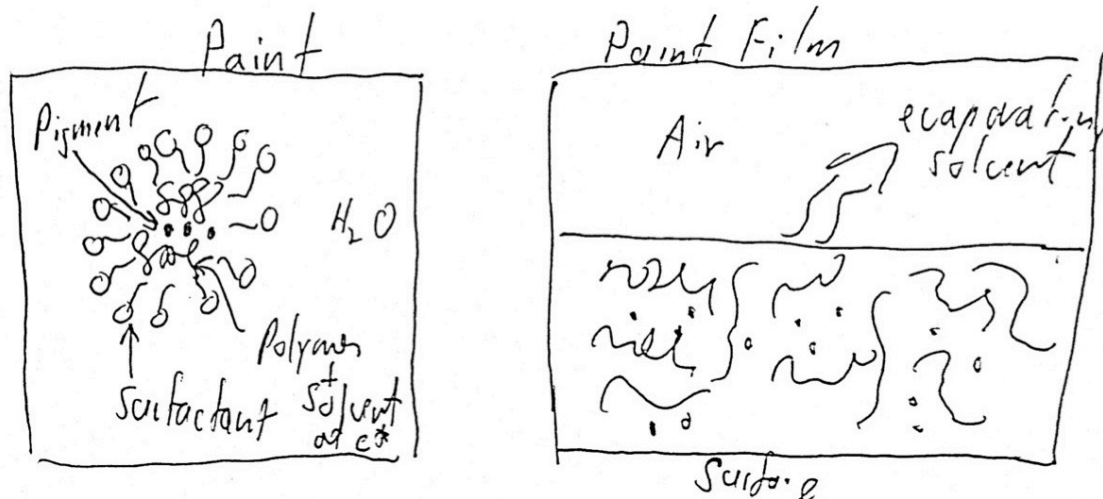 Paint
Pigment
H2O
Polymer
+
Solvent
at c*
Surfactant
Paint Film
Air
evaporating
solvent
Surface